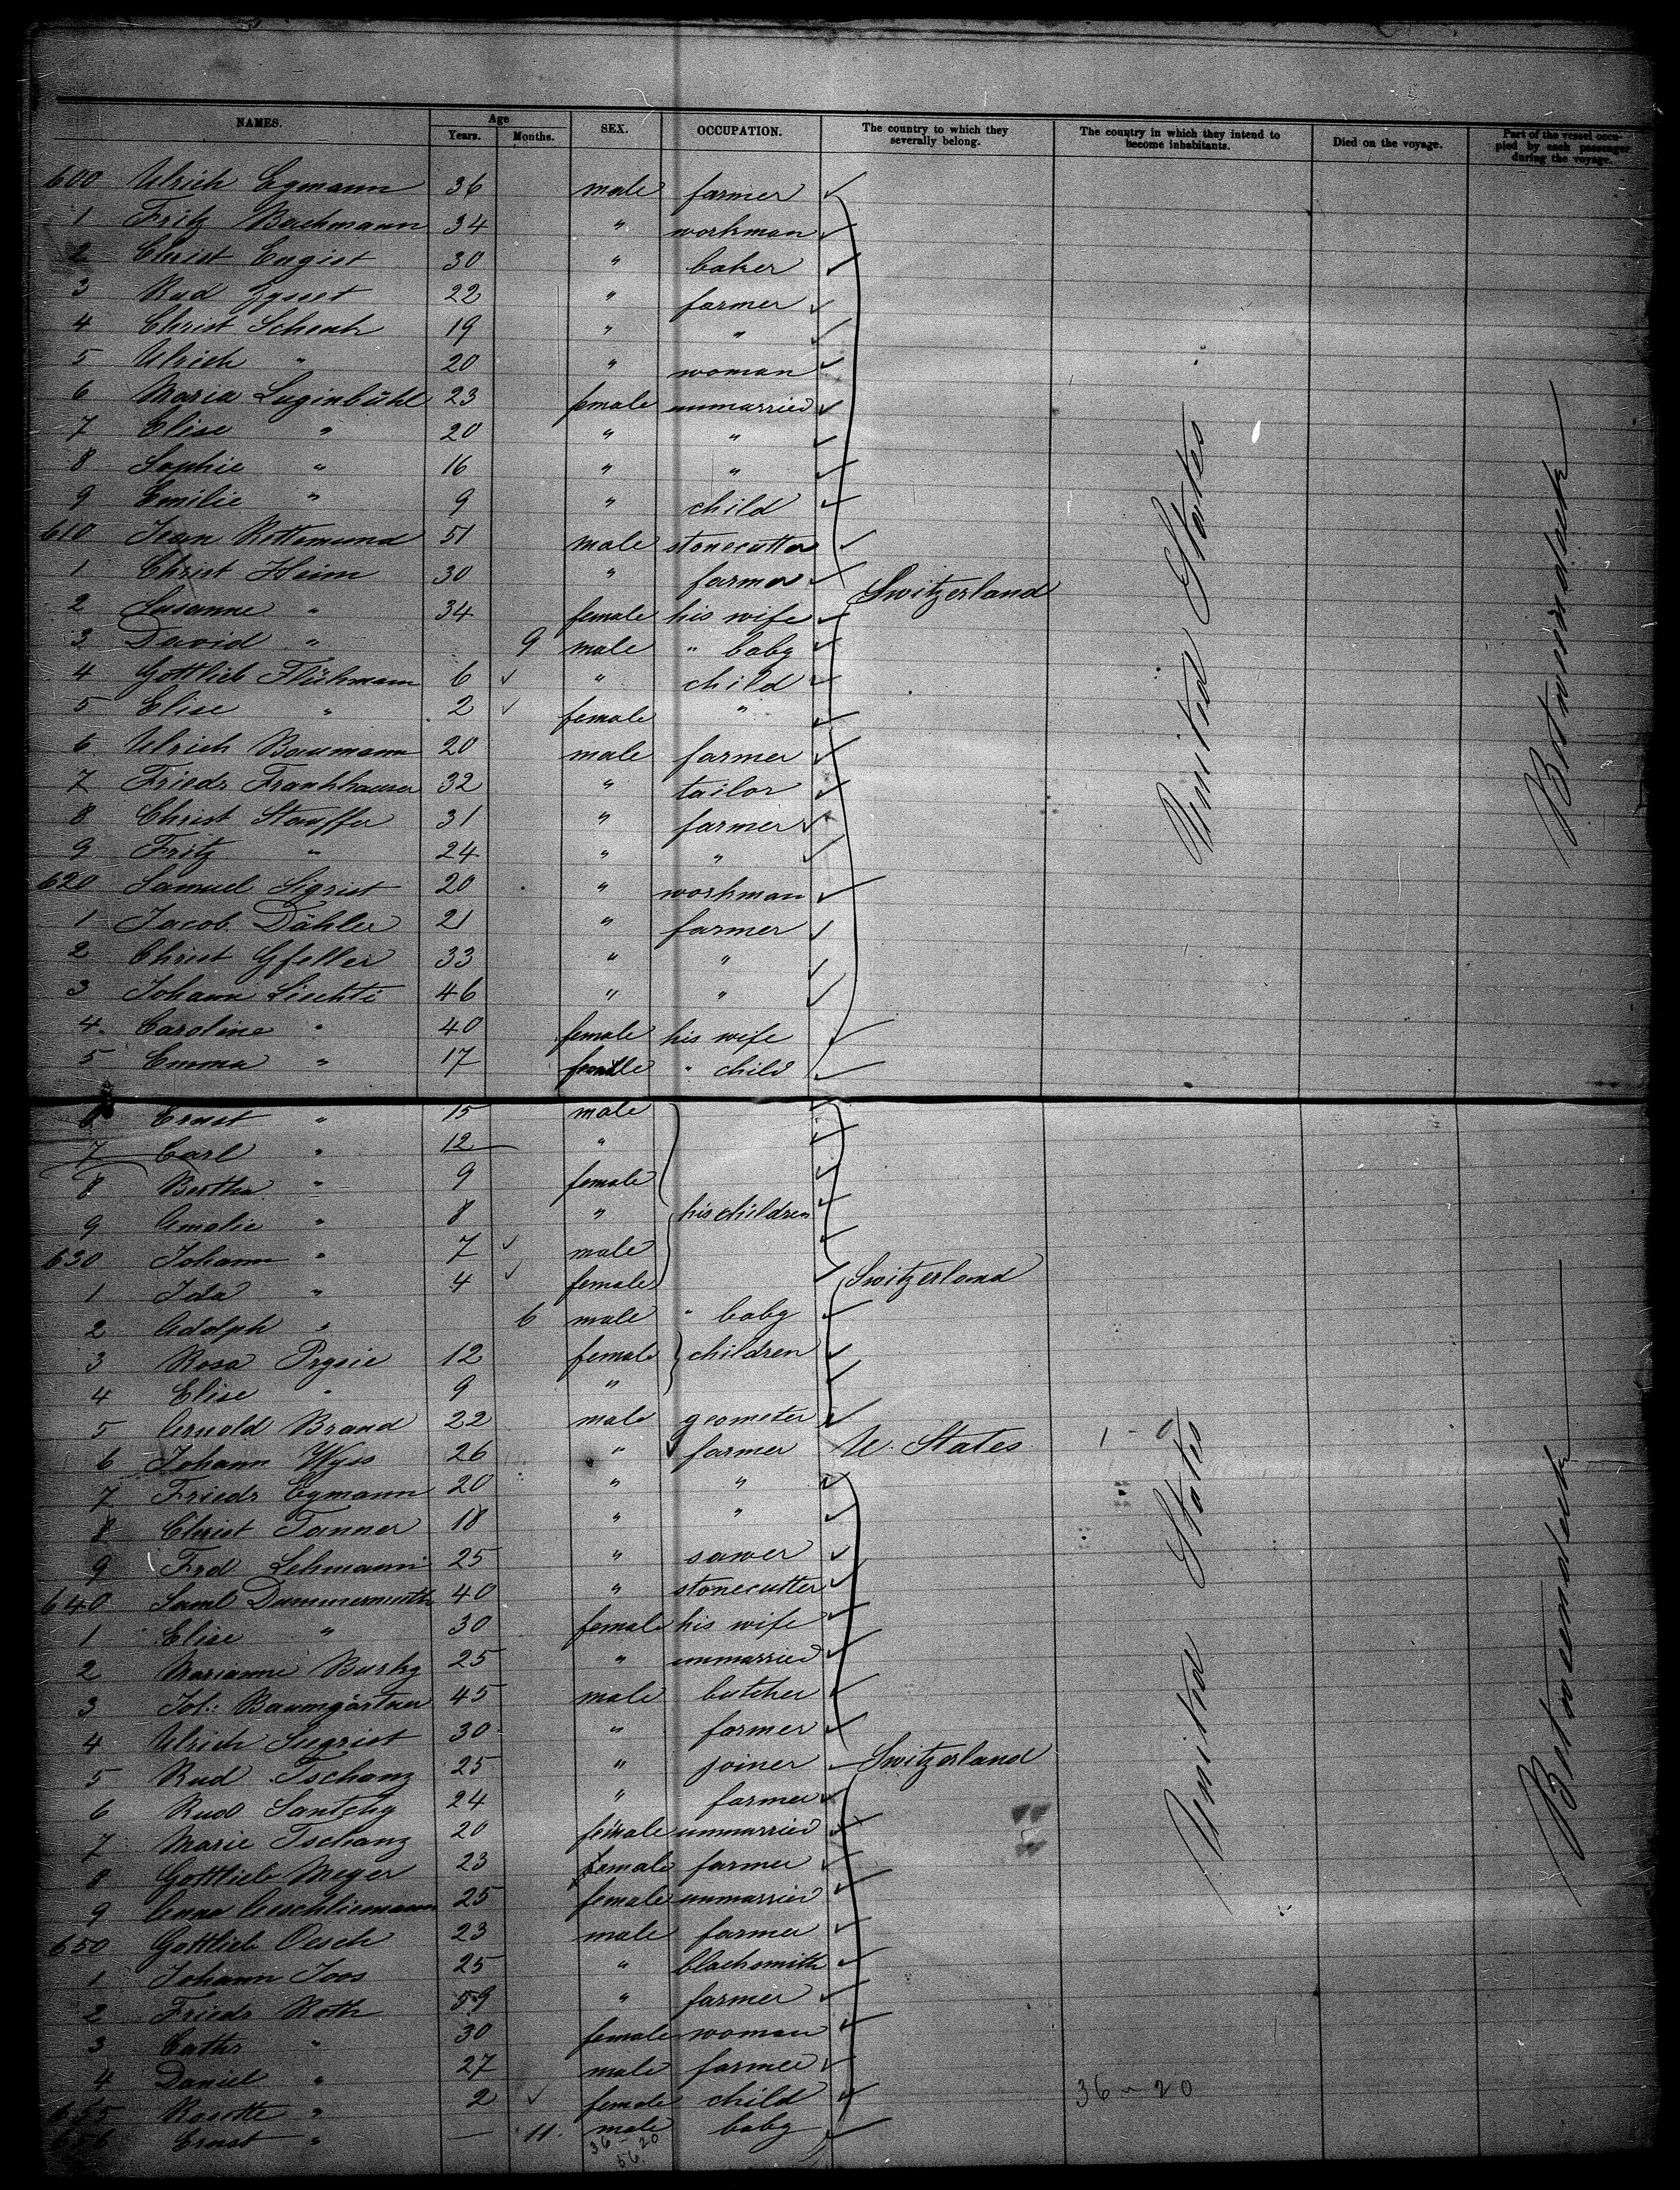 NAMES. Age Years. Months. SEX. OCCUPATION. The country to which they severally belong. The country in which they intend to become inhabitants. Died on the voyage. Part of the vessel occupied by each passenger during the voyage.
600 Ulrich Egmann 36 male farmer
1 Fritz Bachmann 34 " workman
2 Christ Engist 30 " baker
3 Rud Zysset 22 " farmer
4 Christ Schenk 19 " "
5 Ulrich " 20 " woman
6 Maria Luginbühl 23 female unmarried
7 Elise " 20 " "
8 Sophie " 16 " "
9 Emilie " 9 " child
610 Jean Rottemund 51 male stonecutter
1 Christ Heim 30 " farmer
Switzerland
2 Susanne " 34 female his wife
3 David " 9 male " baby
4 Gottlieb Flühmann 6 " child
5 Elise " 2 female "
6 Ulrich Baumann 20 male farmer
7 Friedr Frankhauser 32 " tailor
8 Christ Stauffer 31 " farmer
9 Fritz " 24 " "
620 Samuel Sigrist 20 " workman
1 Jacob Dähler 21 " farmer
2 Christ Gfeller 33 " "
3 Johann Liechti 46 " "
4 Caroline " 40 female his wife
5 Emma " 17 female " child
United States
Betweendeck
6 Ernst " 15 male
7 Carl " 12 "
8 Bertha " 9 female
9 Amalie " 8 " his children
630 Johann " 7 male
1 Ida " 4 female Switzerland
2 Adolph " 6 male " baby
3 Rosa Prysie 12 female children
4 Elise " 9 "
5 Arnold Brand 22 male geometer
6 Johann Wyss 26 " farmer U. States
7 Friedr Egmann 20 " "
8 Christ Tanner 18 " "
9 Frd Lehmann 25 " sawer
640 Saml Dummermuth 40 " stonecutter
1 Elise " 30 female his wife
2 Marianne Burky 25 " unmarried
3 Joh: Baumgärtner 45 male butcher
4 Ulrich Siegrist 30 " farmer
5 Rud Tschanz 25 " joiner Switzerland
6 Rud Santchy 24 " farmer
7 Marie Tschanz 20 female unmarried
8 Gottlieb Meyer 23 female farmer
9 Anna Aeschliemann 25 female unmarried
650 Gottlieb Oesch 23 male farmer
1 Johann Joos 25 " blacksmith
2 Friedr Roth 59 " farmer
3 Cathr " 30 female woman
4 Daniel " 27 male farmer
655 Rosette " 2 female child
656 Ernst " — 11. male baby
United States
Betweendeck
36 - 20
36 20
56.